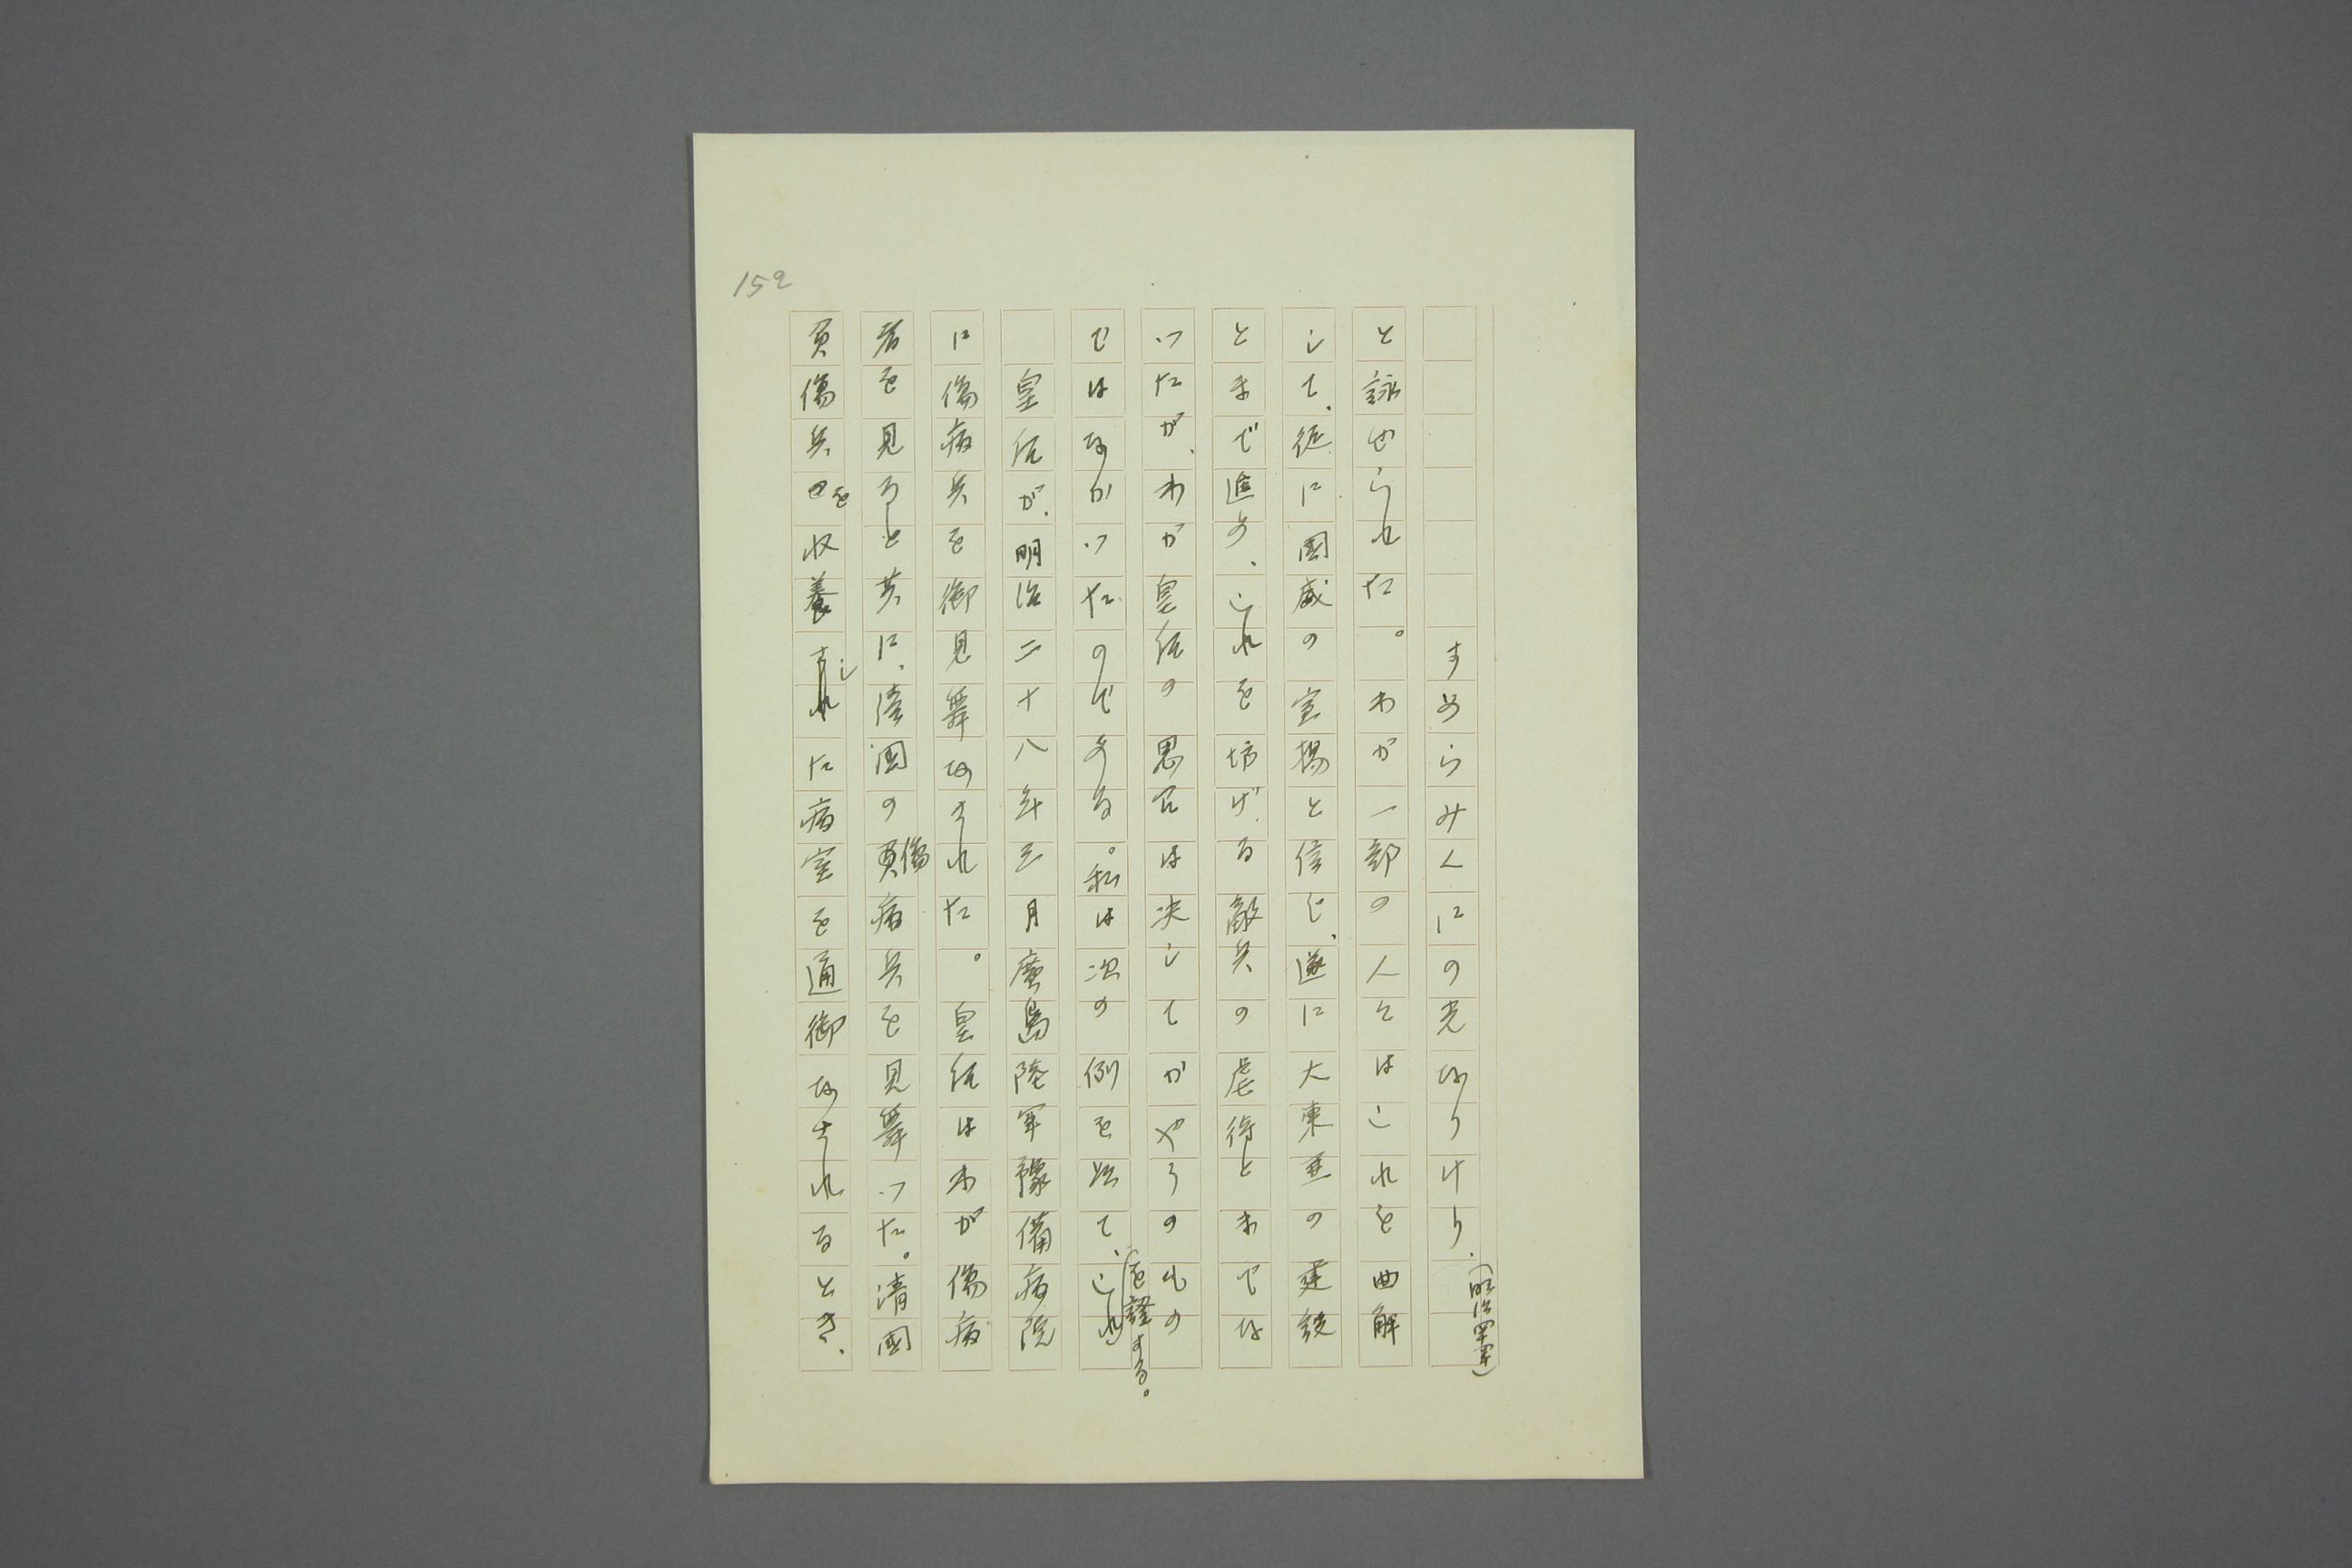 152
すめらみくにの光なりけり、（明治四十年）
と詠ぜられた。わが一部の人々はこれを曲解
して、徒に國威の宣揚と信じ、遂に大東亜の建設
とまで進め、これを妨げる敵兵の虐待とまでな
つたが、わが皇后の思召は決してかやうのもの
ではなかつたのである。私は次の例を以て、これ
を證する。
皇后が、明治二十八年三月廣島陸軍豫備病院
に傷病兵を御見舞なされた。皇后はわが傷病
者を見ると共に、清國の傷病兵を見舞つた。清國
負傷兵を収養した病室を通御なされるとき、